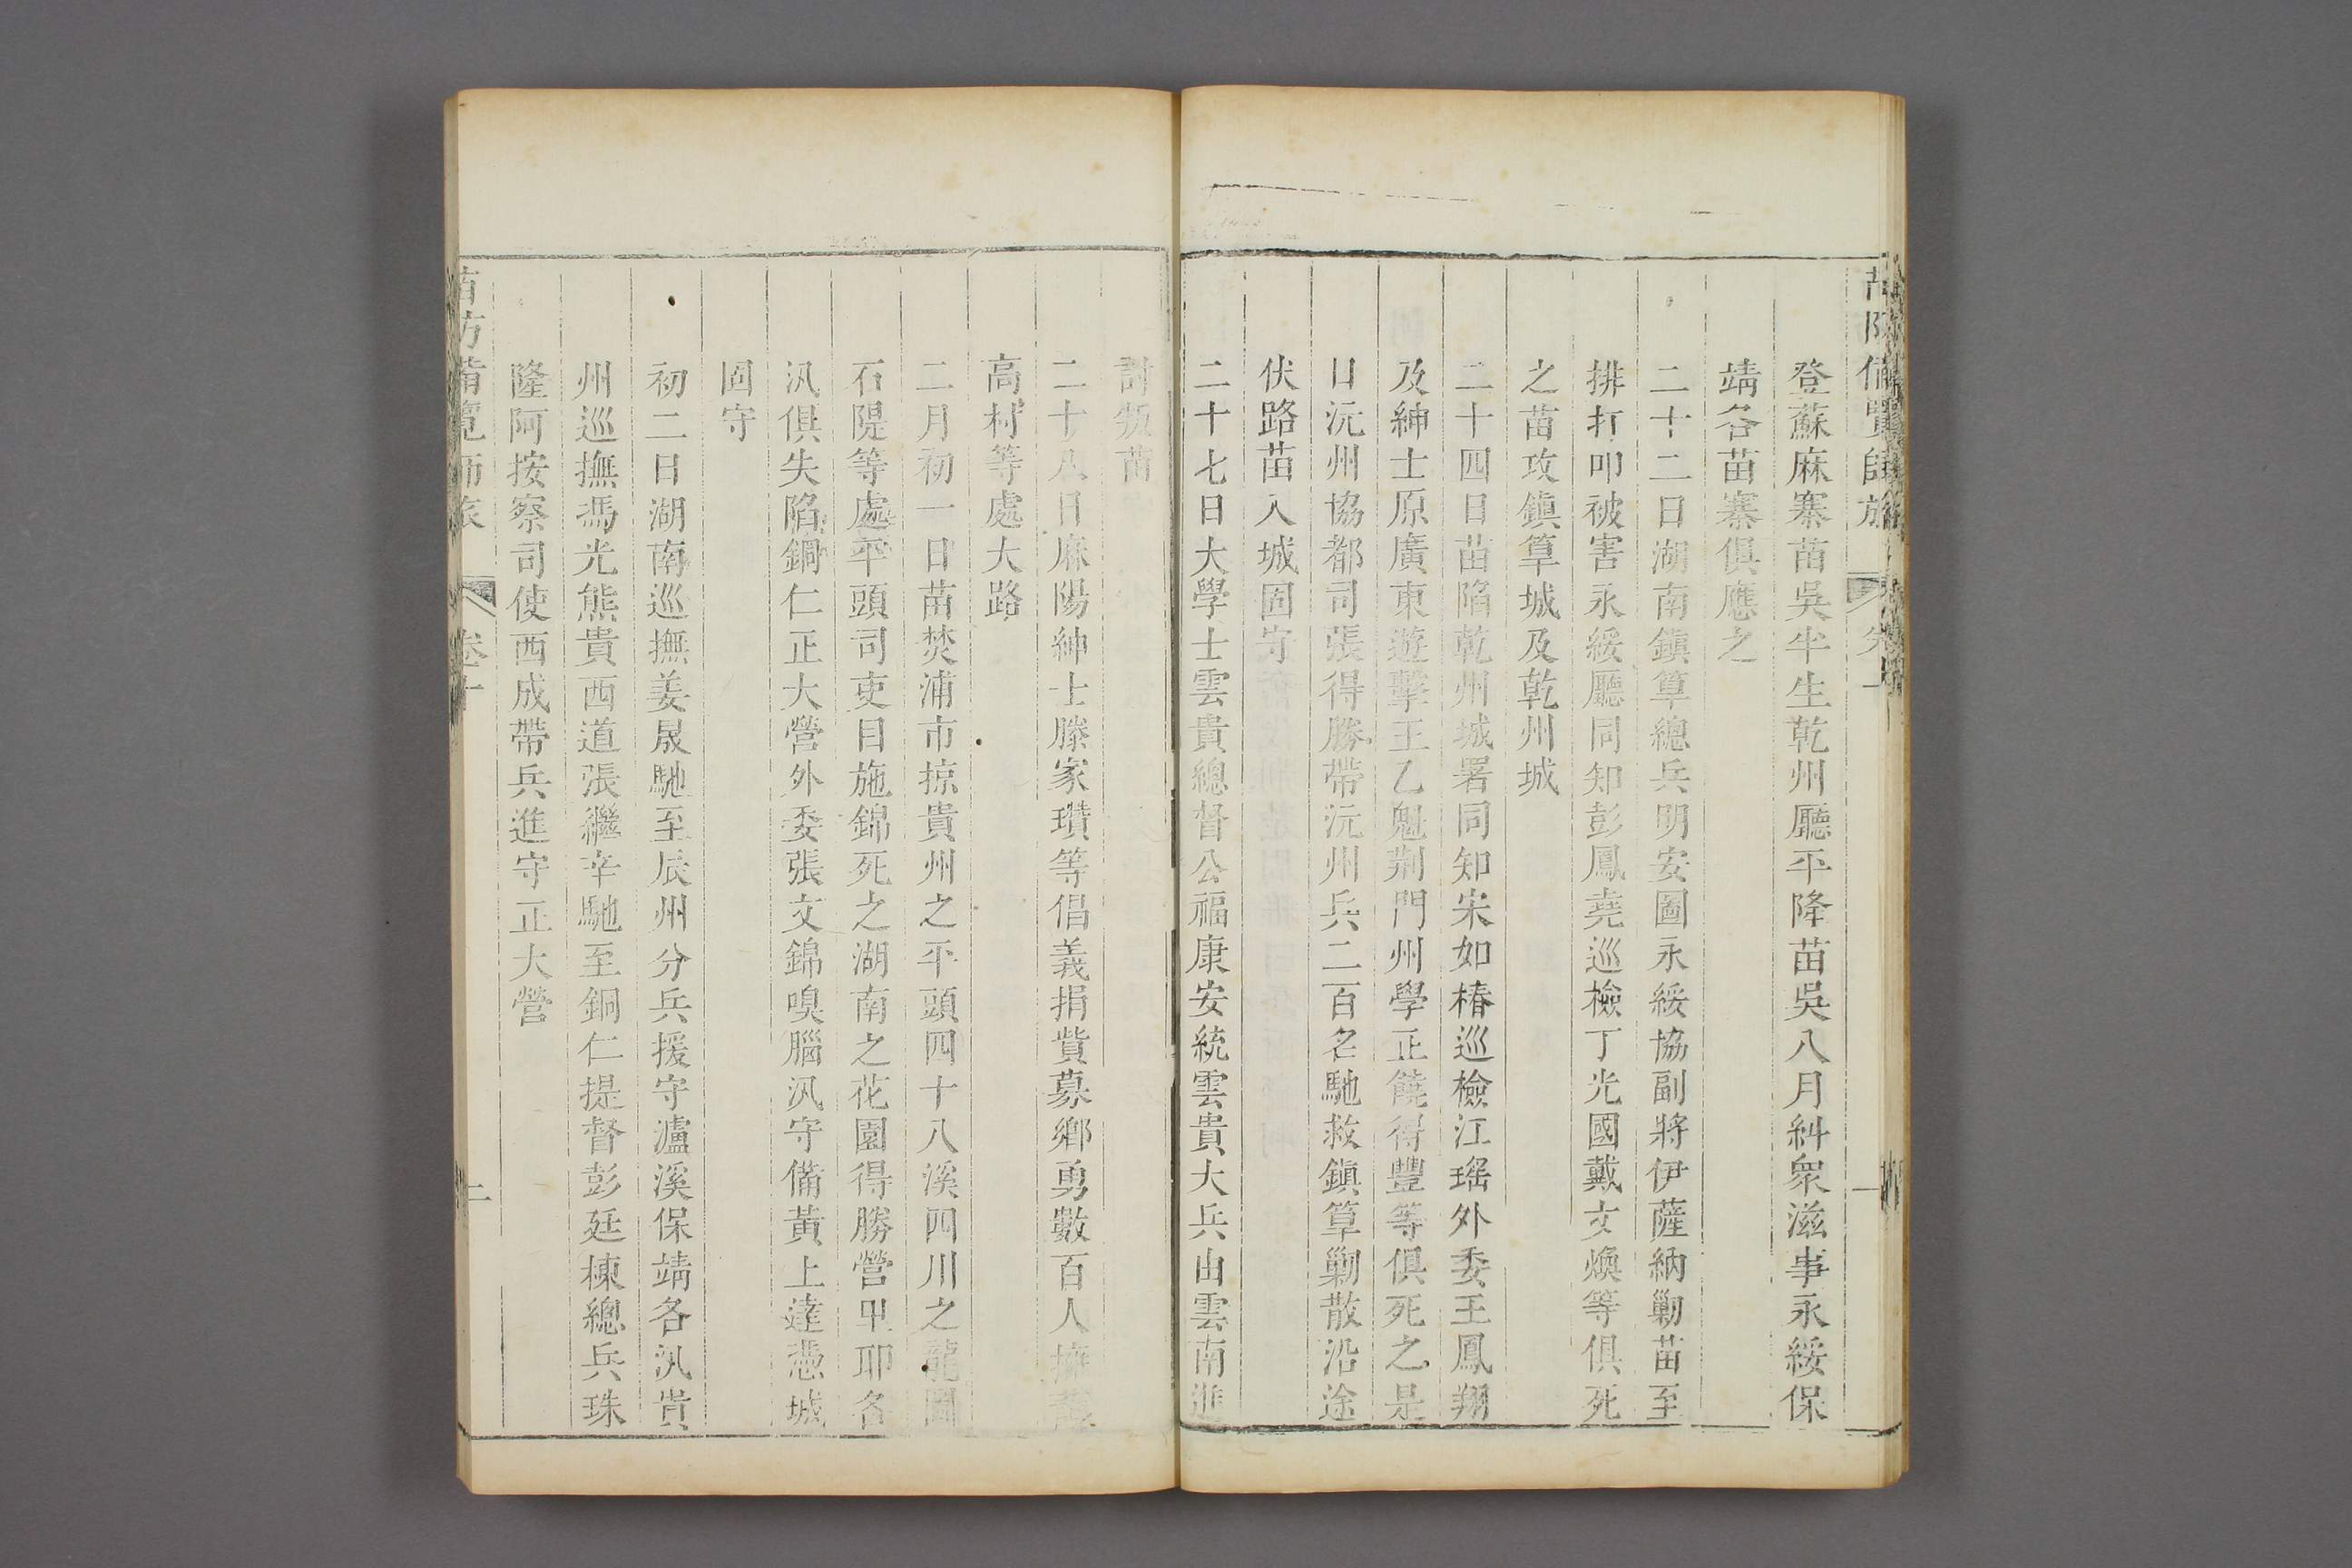 苗防備覽師旅 卷十 一
登蘇麻寨苗吳半生乾州廳平隆苗吳八月糾衆滋事永綏保
靖各苗寨俱應之
二十二日湖南鎮筸總兵明安圖永綏協副將伊薩納勦苗至
排打叩被害永綏廳同知彭鳳堯巡檢丁光國戴文煥等俱死
之苗攻鎮筸城及乾州城
二十四日苗陷乾州城署同知宋如椿巡檢江瑤外委王鳳翔
及紳士原廣東遊擊王乙魁荊門州學正饒得豐等俱死之是
日沅州協都司張得勝帶沅州兵二百名馳救鎮筸勦散沿途
伏路苗入城固守
二十七日大學士雲貴總督公福康安統雲貴大兵由雲南進
討叛苗
二十八日麻陽紳士滕家瓚等倡義捐貲募鄉勇數百人擁護
高村等處大路
二月初一日苗焚浦市掠貴州之平頭四十八溪四川之龍圖
石隄等處平頭司吏目施錦死之湖南之花園得勝營甲卭各
汛俱失陷銅仁正大營外委張文錦嗅腦汛守備黃上達憑城
固守
初二日湖南巡撫姜晟馳至辰州分兵援守瀘溪保靖各汛貴
州巡撫馮光熊貴西道張繼辛馳至銅仁提督彭廷棟總兵珠
隆阿按察司使西成帶兵進守正大營
苗防備覽師旅 卷十 二